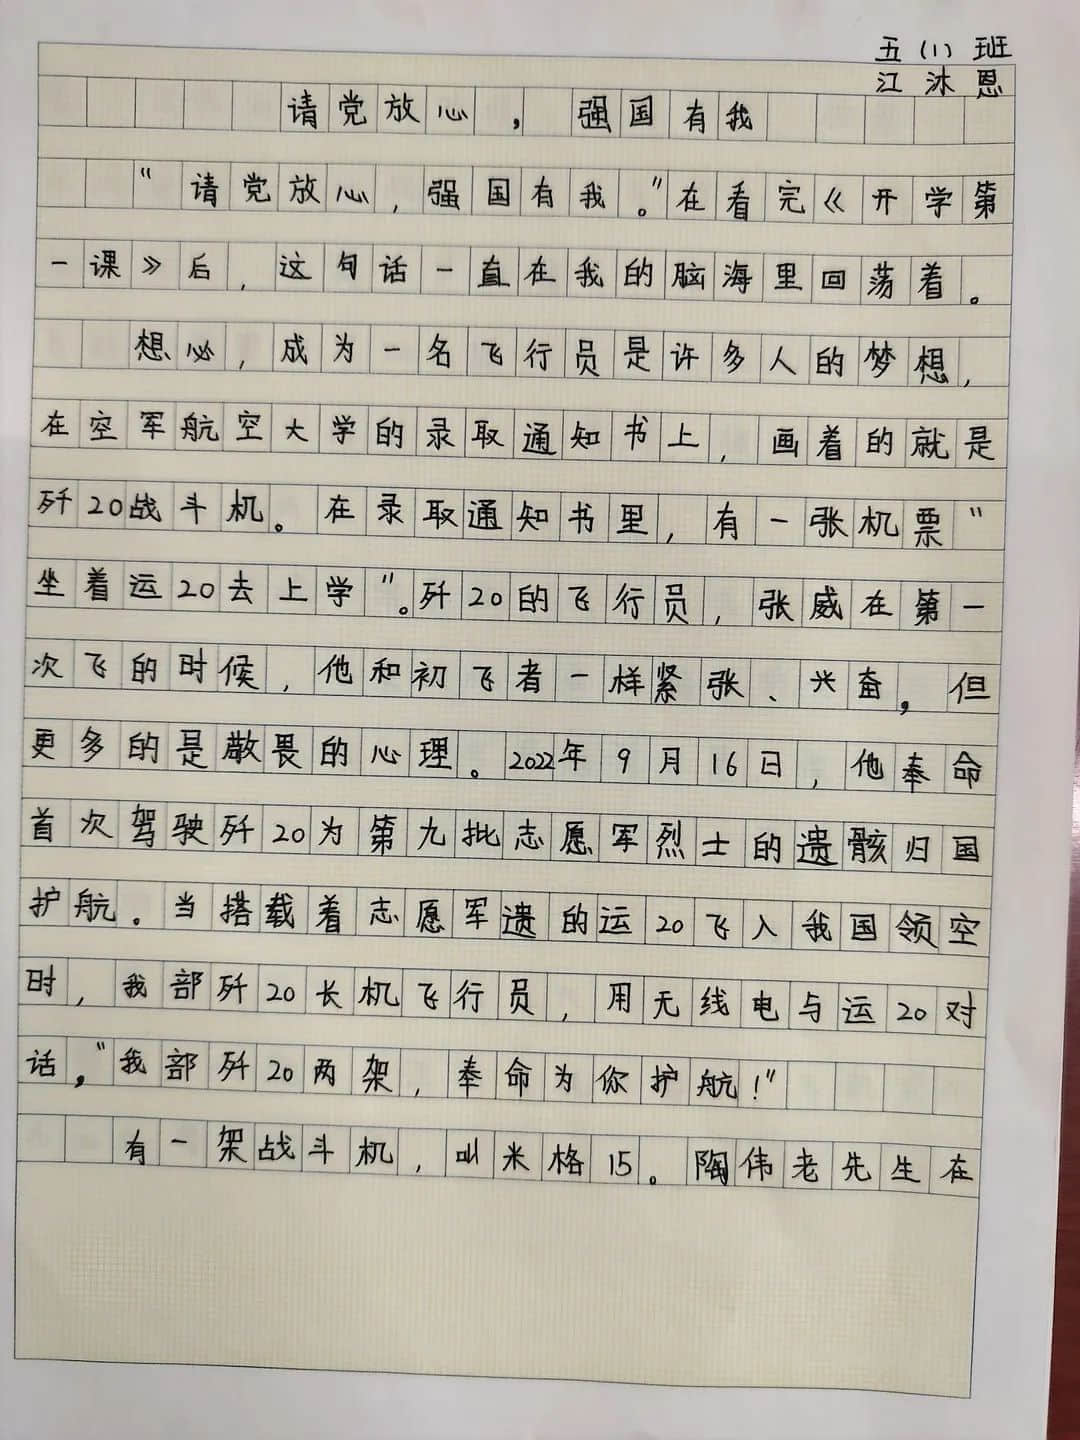 五（1）班
江沐恩
请党放心，强国有我
“请党放心，强国有我。”在看完《开学第
一课》后，这句话一直在我的脑海里回荡着。
想必，成为一名飞行员是许多人的梦想，
在空军航空大学的录取通知书上，画着的就是
歼20战斗机。在录取通知书里，有一张机票“
坐着运20去上学”。歼20的飞行员，张威在第一
次飞的时候，他和初飞者一样紧张、兴奋，但
更多的是敬畏的心理。2022年9月16日，他奉命
首次驾驶歼20为第九批志愿军烈士的遗骸归国
护航。当搭载着志愿军遗的运20飞入我国领空
时，我部歼20长机飞行员，用无线电与运20对
话，“我部歼20两架，奉命为你护航！”
有一架战斗机，叫米格15。陶伟老先生在